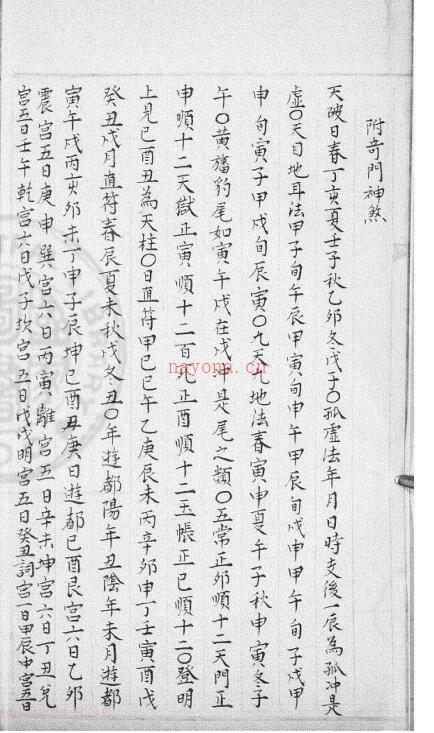 附奇門神煞
天破日春丁亥夏壬子秋乙卯冬戊子〇孤虛法年月日時支後一辰為孤沖是
虛〇天目地耳法甲子旬午辰甲寅旬申午甲辰旬戌申甲午旬子戌甲
申旬寅子甲戌旬辰寅〇九天九地法春寅申夏午子秋申寅冬子
午〇黃旛豹尾如寅午戌在戌沖是尾之類〇五常正卯順十二天門正
申順十二天獄正寅順十二百死正酉順十二玉帳正巳順十二〇登明
上見巳酉丑為天柱〇日直符甲巳巳午乙庚辰未丙辛卯申丁壬寅酉戊
癸丑戌月直符春辰夏未秋戌冬丑〇年遊都陽年丑陰年未月遊都
寅午戌丙亥卯未丁申子辰坤巳酉丑庚日遊都巳酉艮宮六日乙卯
震宮五日庚申巽宮六日丙寅離宮五日辛未坤宮六日丁丑兌
宮五日壬午乾宮六日戊子坎宮五日戊戌明宮五日癸丑詞宮一日甲辰中宮五日
nayona.cn